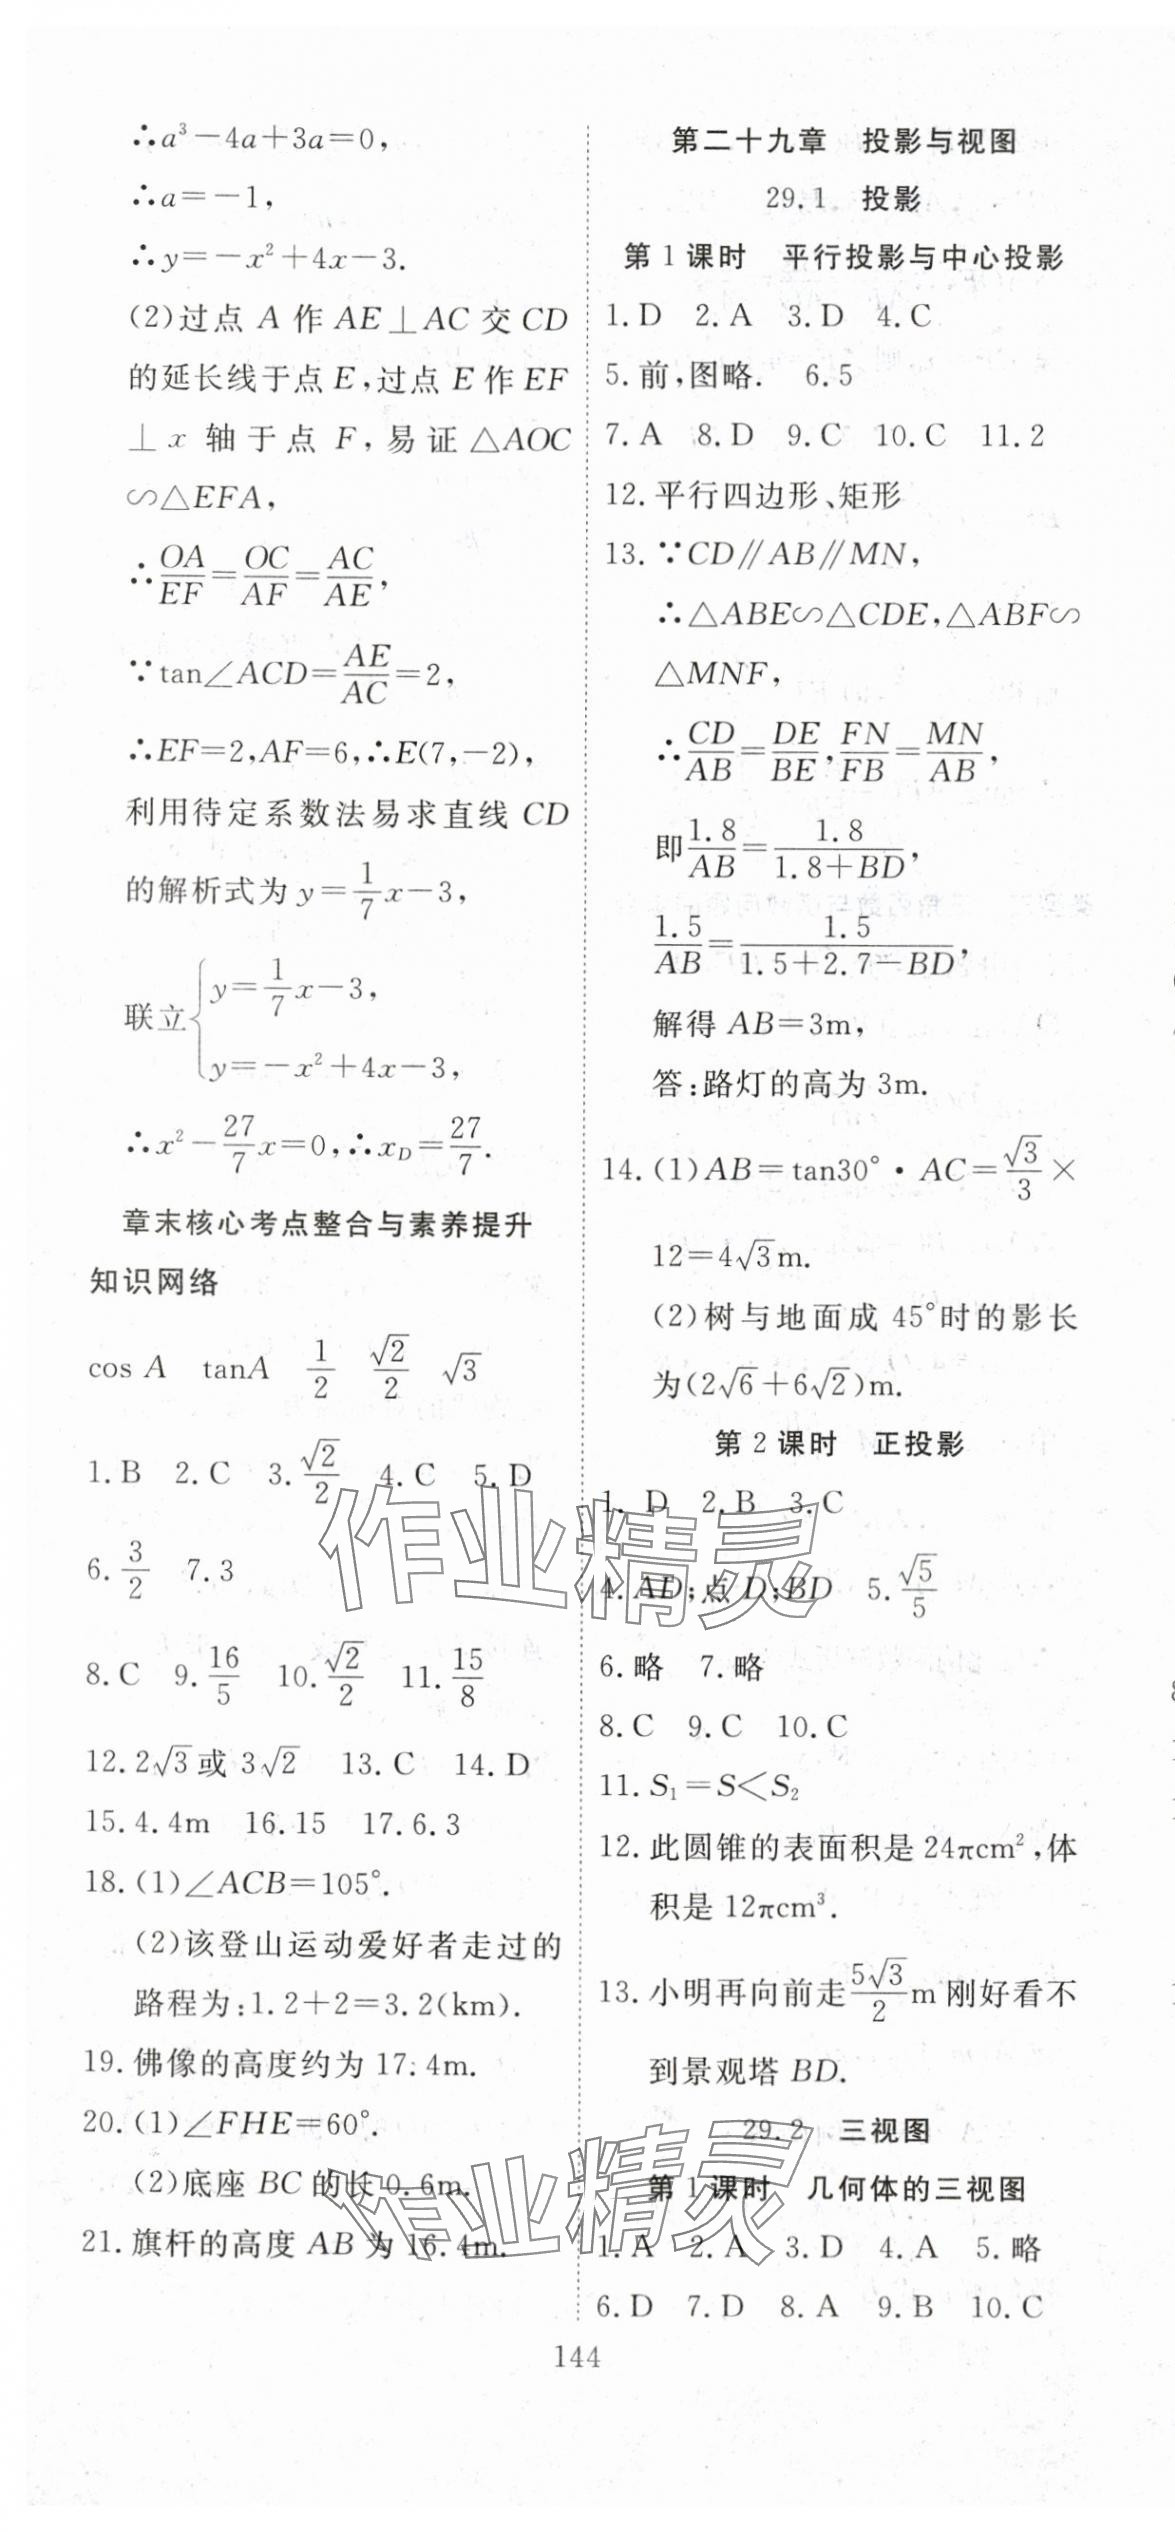 ∴a³－4a＋3a＝0，
∴a＝－1，
∴y＝－x²＋4x－3.
(2)过点 A 作 AE⊥AC 交 CD
的延长线于点 E，过点 E 作 EF
⊥x 轴于点 F，易证△AOC
∽△EFA，
∴OA/EF＝OC/AF＝AC/AE，
∵tan∠ACD＝AE/AC＝2，
∴EF＝2，AF＝6，∴E(7，－2)，
利用待定系数法易求直线 CD
的解析式为 y＝1/7x－3，
联立{y＝1/7x－3，
y＝－x²＋4x－3，
∴x²－27/7x＝0，∴x_D＝27/7.
章末核心考点整合与素养提升
知识网络
cos A tanA 1/2 √2/2 √3
1.B 2.C 3.√2/2 4.C 5.D
6.3/2 7.3
8.C 9.16/5 10.√2/2 11.15/8
12.2√3或 3√2 13.C 14.D
15.4.4m 16.15 17.6.3
18.(1)∠ACB＝105°.
(2)该登山运动爱好者走过的
路程为：1.2＋2＝3.2(km).
19.佛像的高度约为 17.4m.
20.(1)∠FHE＝60°.
(2)底座 BC 的长 0.6m.
21.旗杆的高度 AB 为 16.4m.
第二十九章 投影与视图
29.1 投影
第 1 课时 平行投影与中心投影
1.D 2.A 3.D 4.C
5.前，图略. 6.5
7.A 8.D 9.C 10.C 11.2
12.平行四边形、矩形
13.∵CD∥AB∥MN，
∴△ABE∽△CDE，△ABF∽
△MNF，
∴CD/AB＝DE/BE，FN/FB＝MN/AB，
即1.8/AB＝1.8/(1.8＋BD)，
1.5/AB＝1.5/(1.5＋2.7－BD)，
解得 AB＝3m，
答：路灯的高为 3m.
14.(1)AB＝tan30°•AC＝√3/3×
12＝4√3m.
(2)树与地面成 45°时的影长
为(2√6＋6√2)m.
第 2 课时 正投影
1.D 2.B 3.C
4.AD；点 D；BD 5.√5/5
6.略 7.略
8.C 9.C 10.C
11.S₁＝S＜S₂
12.此圆锥的表面积是 24πcm²，体
积是 12πcm³.
13.小明再向前走5√3/2m 刚好看不
到景观塔 BD.
29.2 三视图
第 1 课时 几何体的三视图
1.A 2.A 3.D 4.A 5.略
6.D 7.D 8.A 9.B 10.C
144
作业精灵
作业精灵